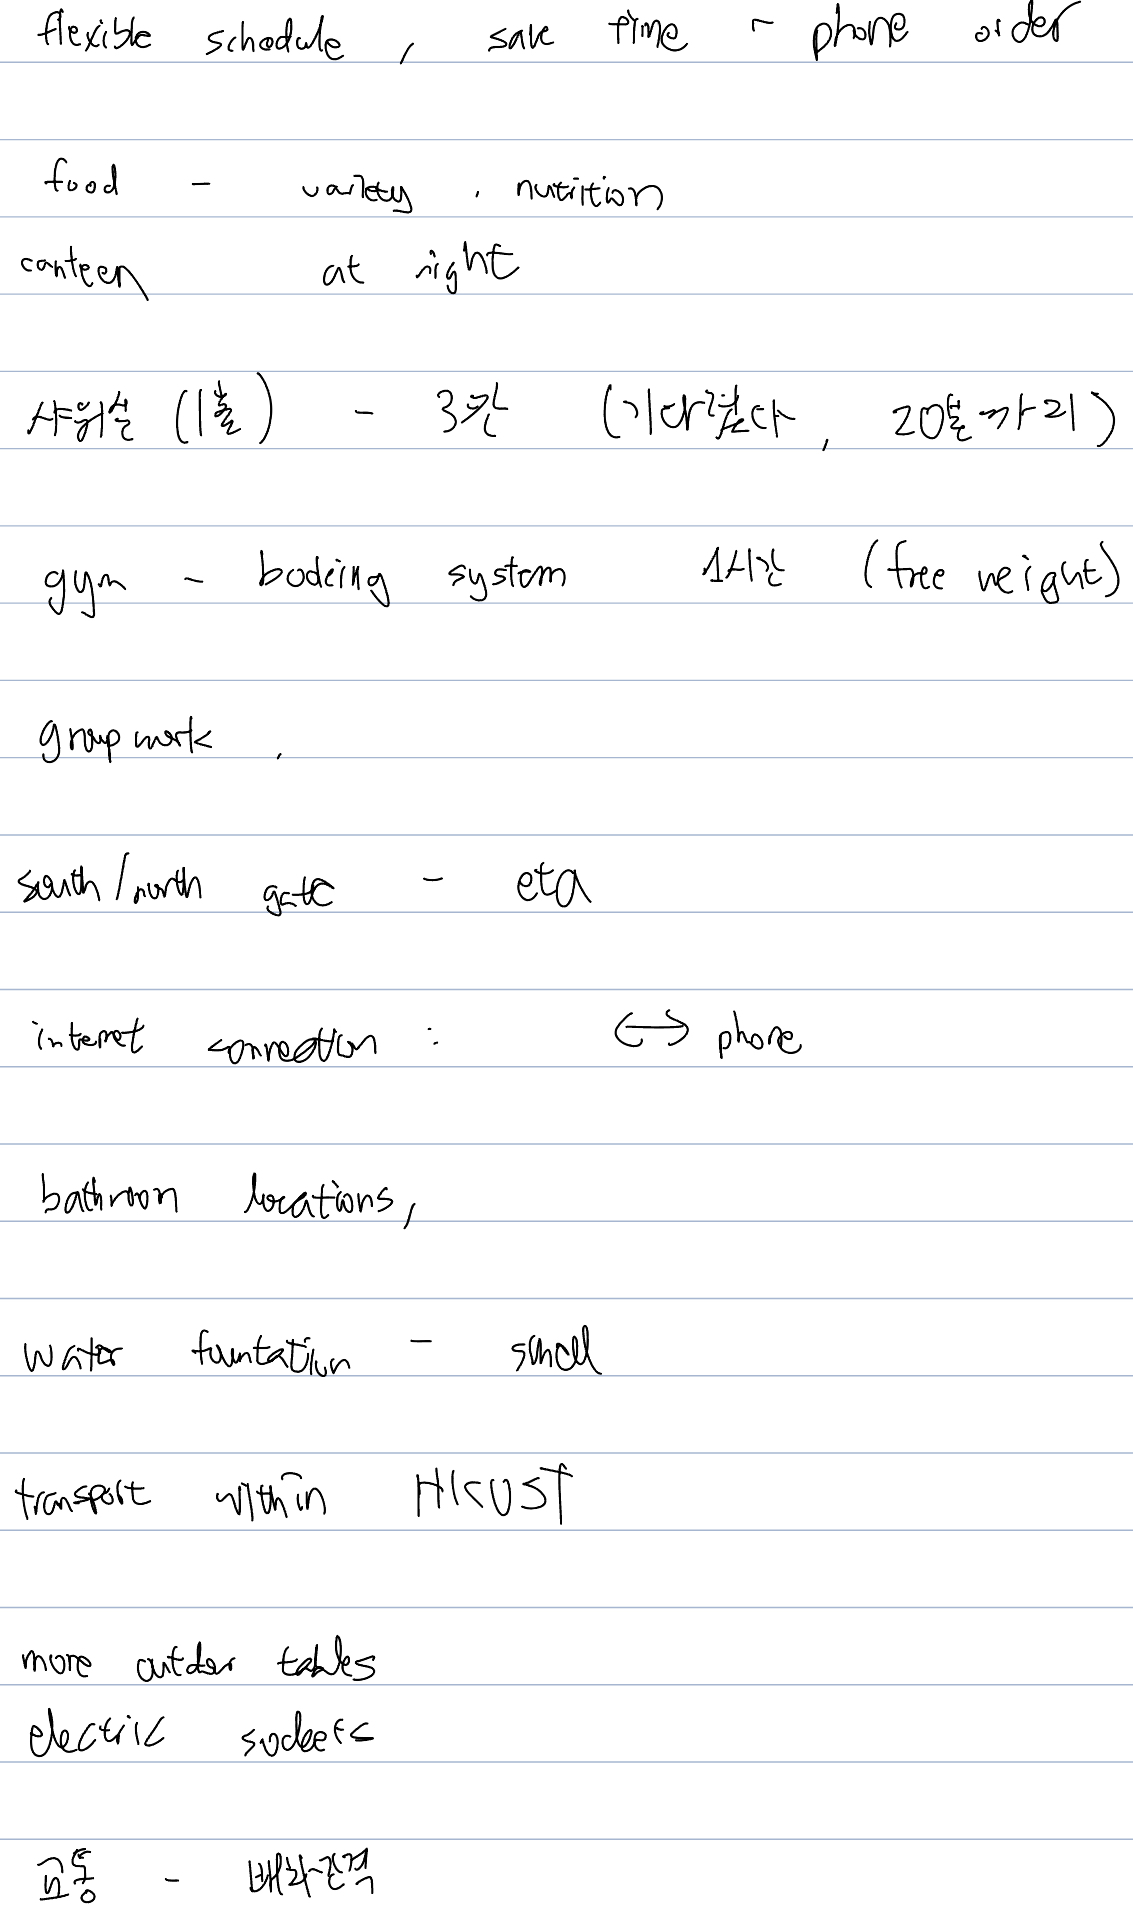 flexible schedule, save time - phone order
food - variety, nutrition
canteen at night
샤워실 (1홀) - 3칸 (기다렸다, 20분까리)
gym - booking system 1시간 (free weight)
group work,
south/north gate - eta
internet connection : ↔ phone
bathroom locations,
water fountation - small
transport within HKUST
more outdoor tables
electric sockets
교통 - 배차간격